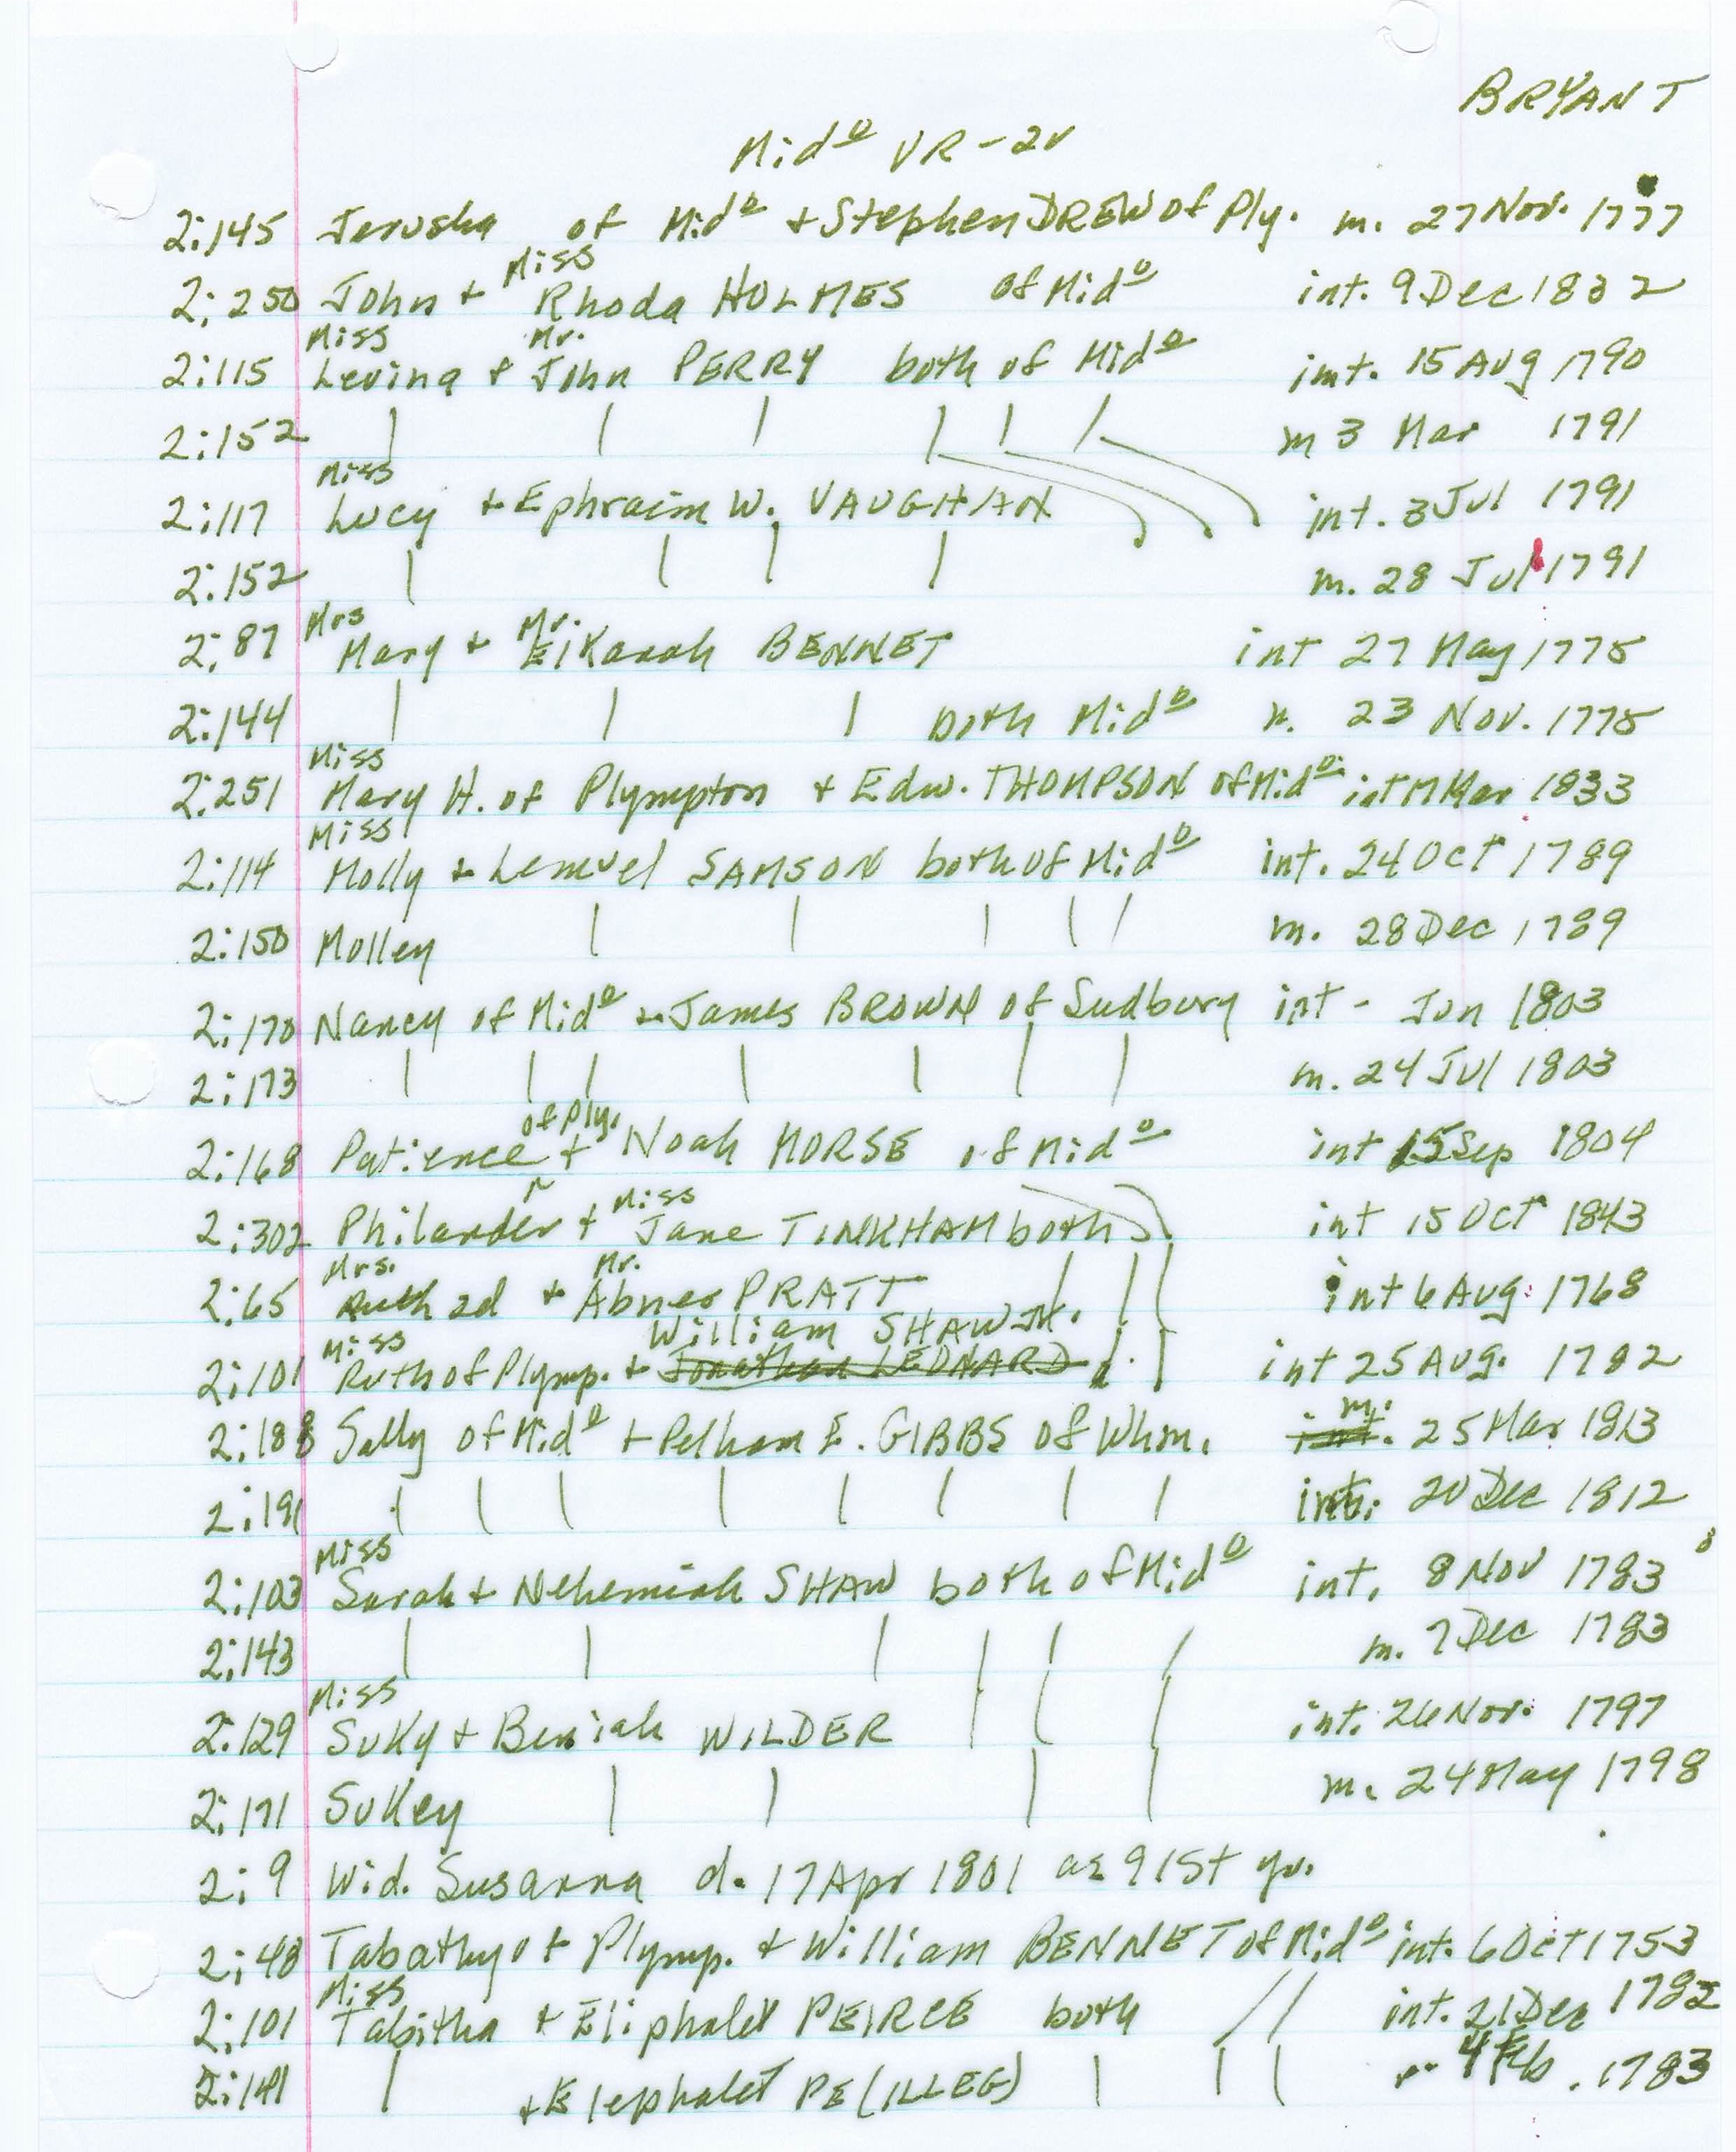 BRYANT
Mido VR - 2v
2:145 Jerusha of Mido + Stephen DREW of Ply. m. 27 Nov. 1777
2:250 John + Miss Rhoda HOLMES of Mido int. 9 Dec 1832
2:115 Miss Levina + Mr. John PERRY both of Mido int. 15 Aug 1790
2:152 | | | | | / m 3 Mar 1791
2:117 Miss Lucy + Ephraim W. VAUGHAN int. 3 Jul 1791
2:152 | | | | m. 28 Jul 1791
2:87 Mrs Mary + Mr. Elkanah BENNET int 27 May 1775
2:144 | | | both Mido m. 23 Nov. 1775
2:251 Miss Mary H. of Plympton + Edw. THOMPSON of Mido int Mar 1833
2:114 Miss Molly + Lemuel SAMSON both of Mido int. 24 Oct 1789
2:150 Molley | | | | | m. 28 Dec 1789
2:170 Nancy of Mido + James BROWN of Sudbury int - Jun 1803
2:173 | | | | | | | m. 24 Jul 1803
2:168 Patience of Ply. + Noah MORSE of Mido int 15 Sep 1804
2:302 Philander + Miss Jane TINKHAM both int 15 Oct 1843
2:65 Mrs. Ruth 2d + Mr. Abner PRATT int 6 Aug. 1768
2:101 Miss Ruth of Plymp. + William SHAW Jr. Jonathan LEONARD int 25 Aug. 1782
2:188 Sally of Mido + Pelham E. GIBBS of Whm. int. m. 25 Mar 1813
2:191 | | | | | | | | int. 20 Dec 1812
2:103 Miss Sarah + Nehemiah SHAW both of Mido int. 8 Nov 1783
2:143 | | | | | / m. 7 Dec 1783
2:129 Miss Suky + Beniah WILDER int. 26 Nov. 1797
2:171 Sukey | | | | m. 24 May 1798
2:9 Wid. Susanna d. 17 Apr 1801 ae 91st yr.
2:48 Tabathy of Plymp. + William BENNET of Mido int. 6 Oct 1753
2:101 Miss Tabitha + Eliphalet PEIRCE both / / int. 21 Dec 1782
2:141 | + Elephalet PE(ILLEG) | | | 4 Feb. 1783